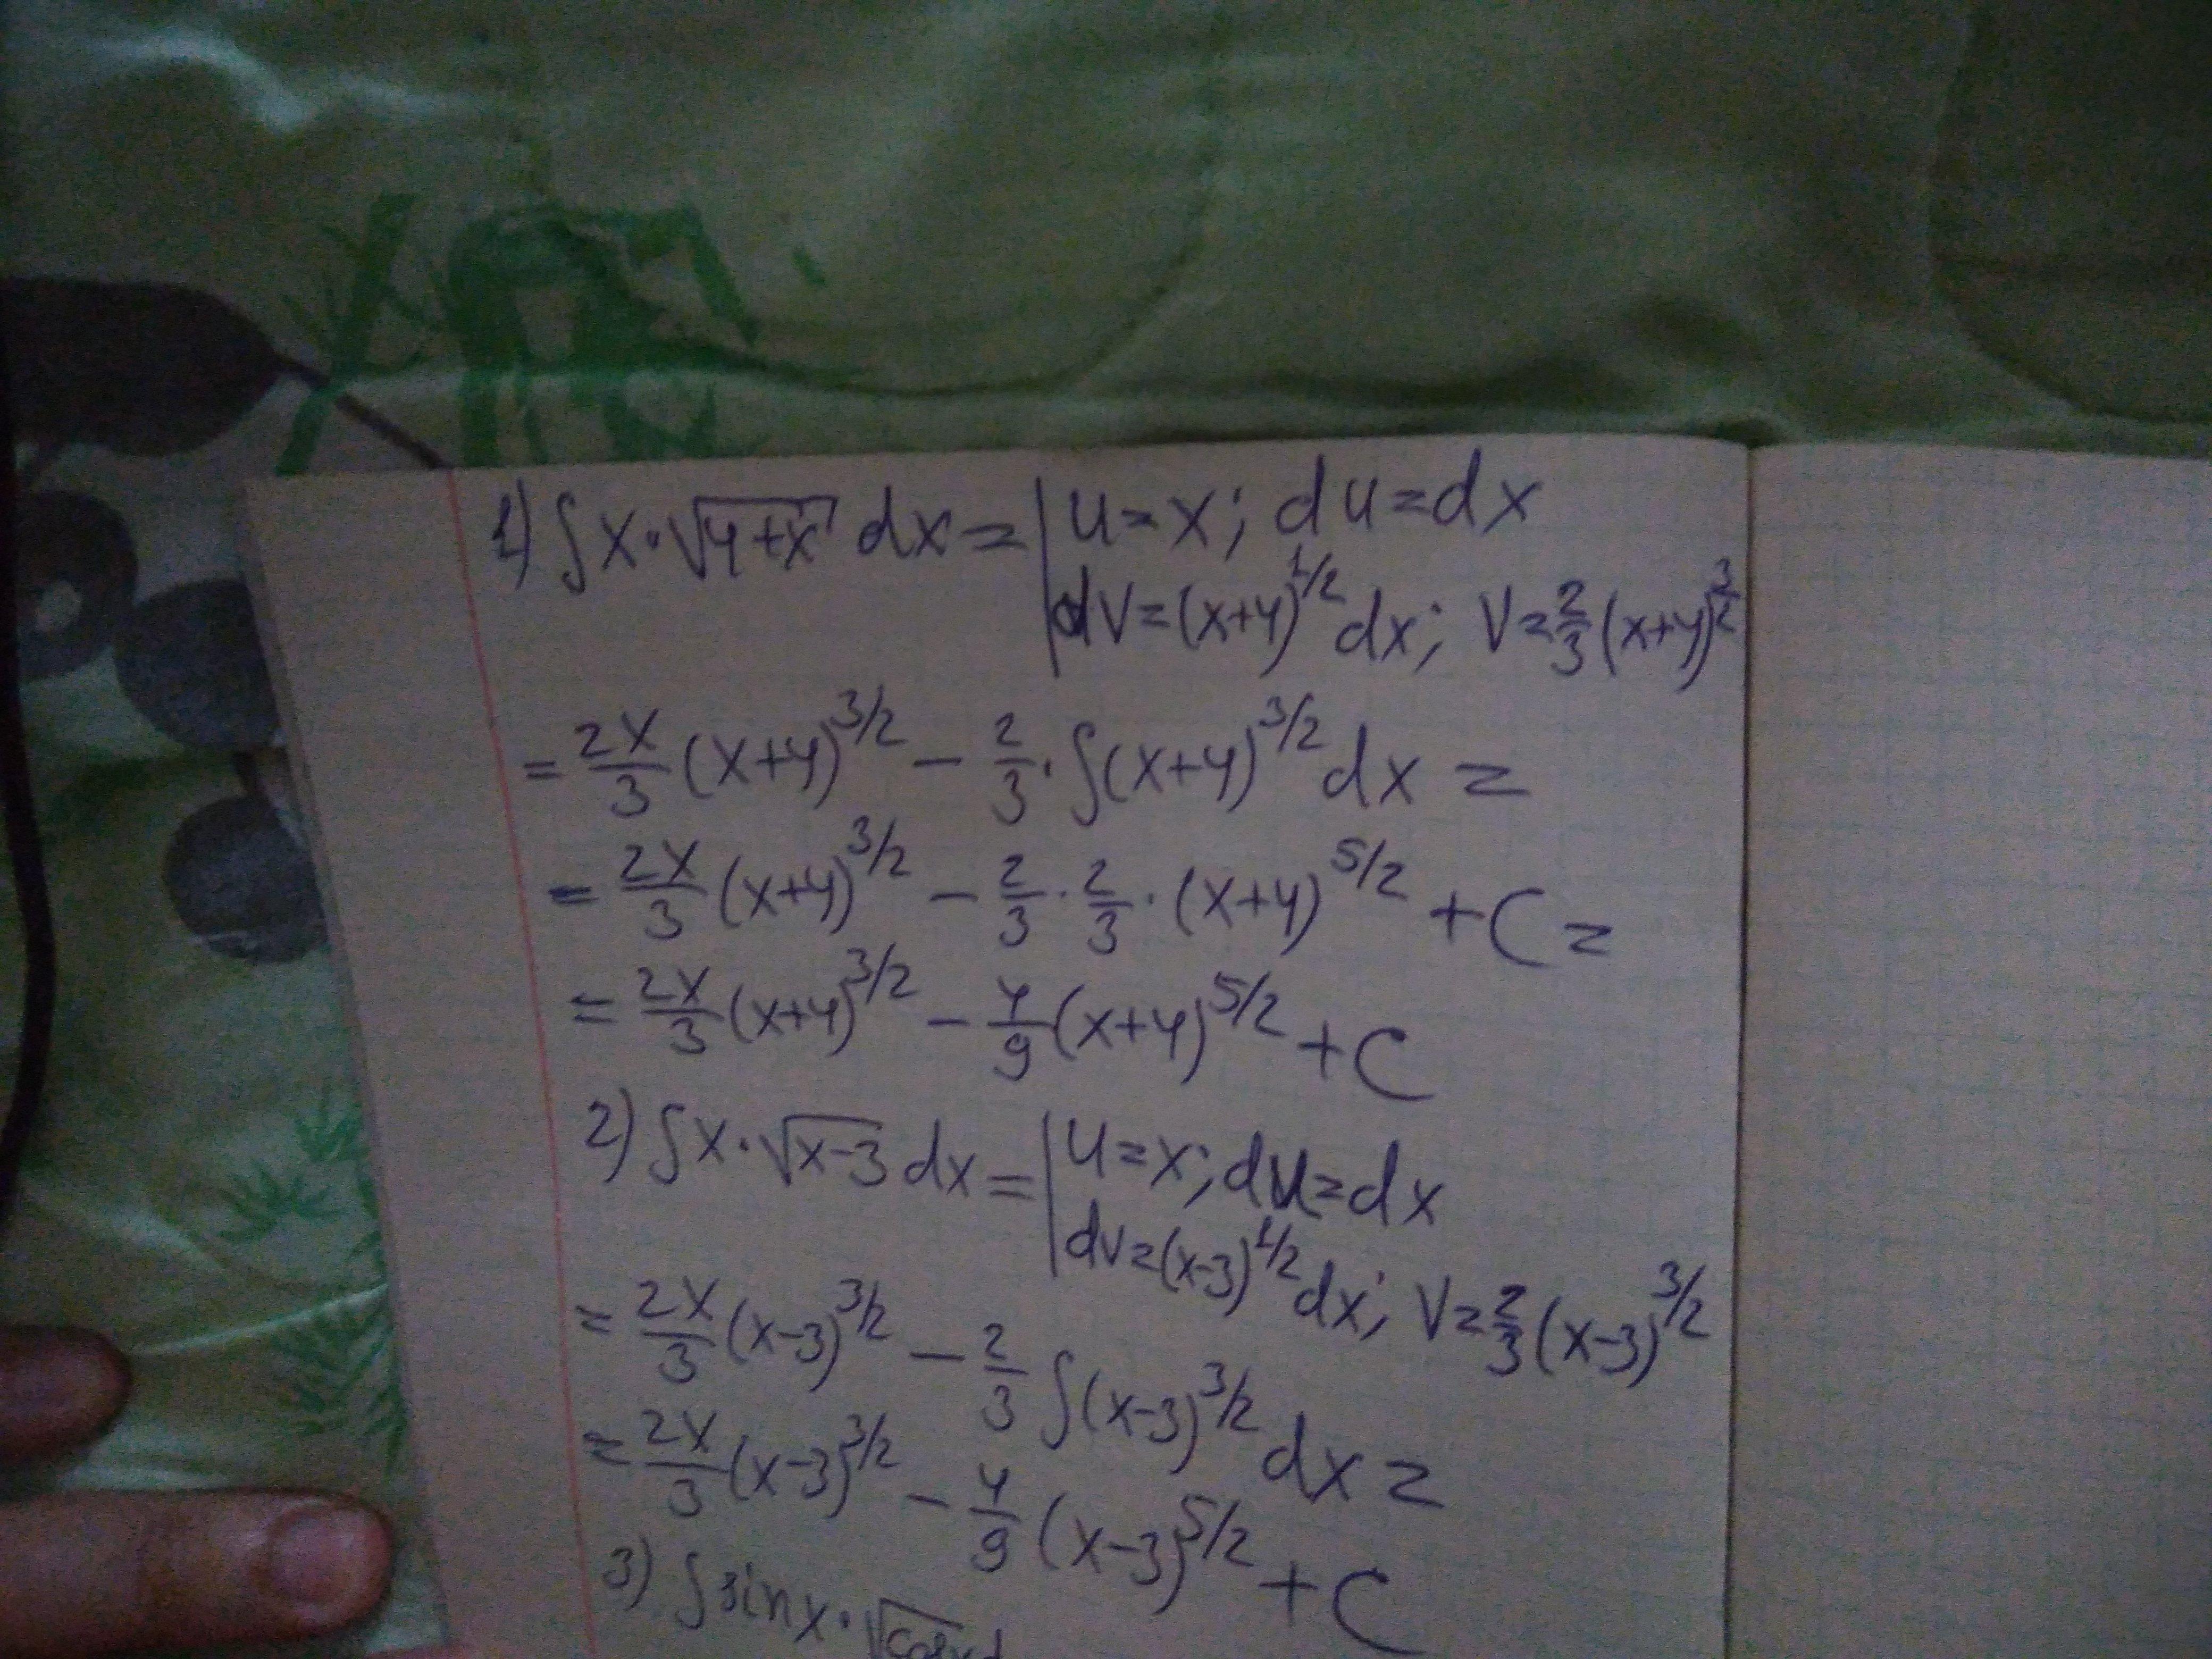 1) ∫x·√(4+x) dx = | u=x; du=dx
dv=(x+4)^1/2 dx; v=2/3(x+4)^3/2
= 2x/3 (x+4)^3/2 - 2/3·∫(x+4)^3/2 dx =
= 2x/3 (x+4)^3/2 - 2/3·2/3·(x+4)^5/2 + C =
= 2x/3 (x+4)^3/2 - 4/9 (x+4)^5/2 + C
2) ∫x·√(x-3) dx = | u=x; du=dx
dv=(x-3)^1/2 dx; v=2/3(x-3)^3/2
= 2x/3 (x-3)^3/2 - 2/3 ∫(x-3)^3/2 dx =
= 2x/3 (x-3)^3/2 - 4/9 (x-3)^5/2 + C
3) ∫sinx·√cosx